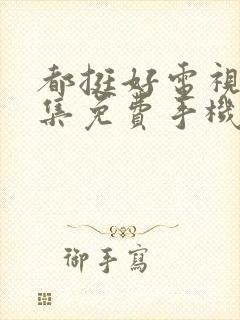 都挺好電視
集免費手機
御手寫